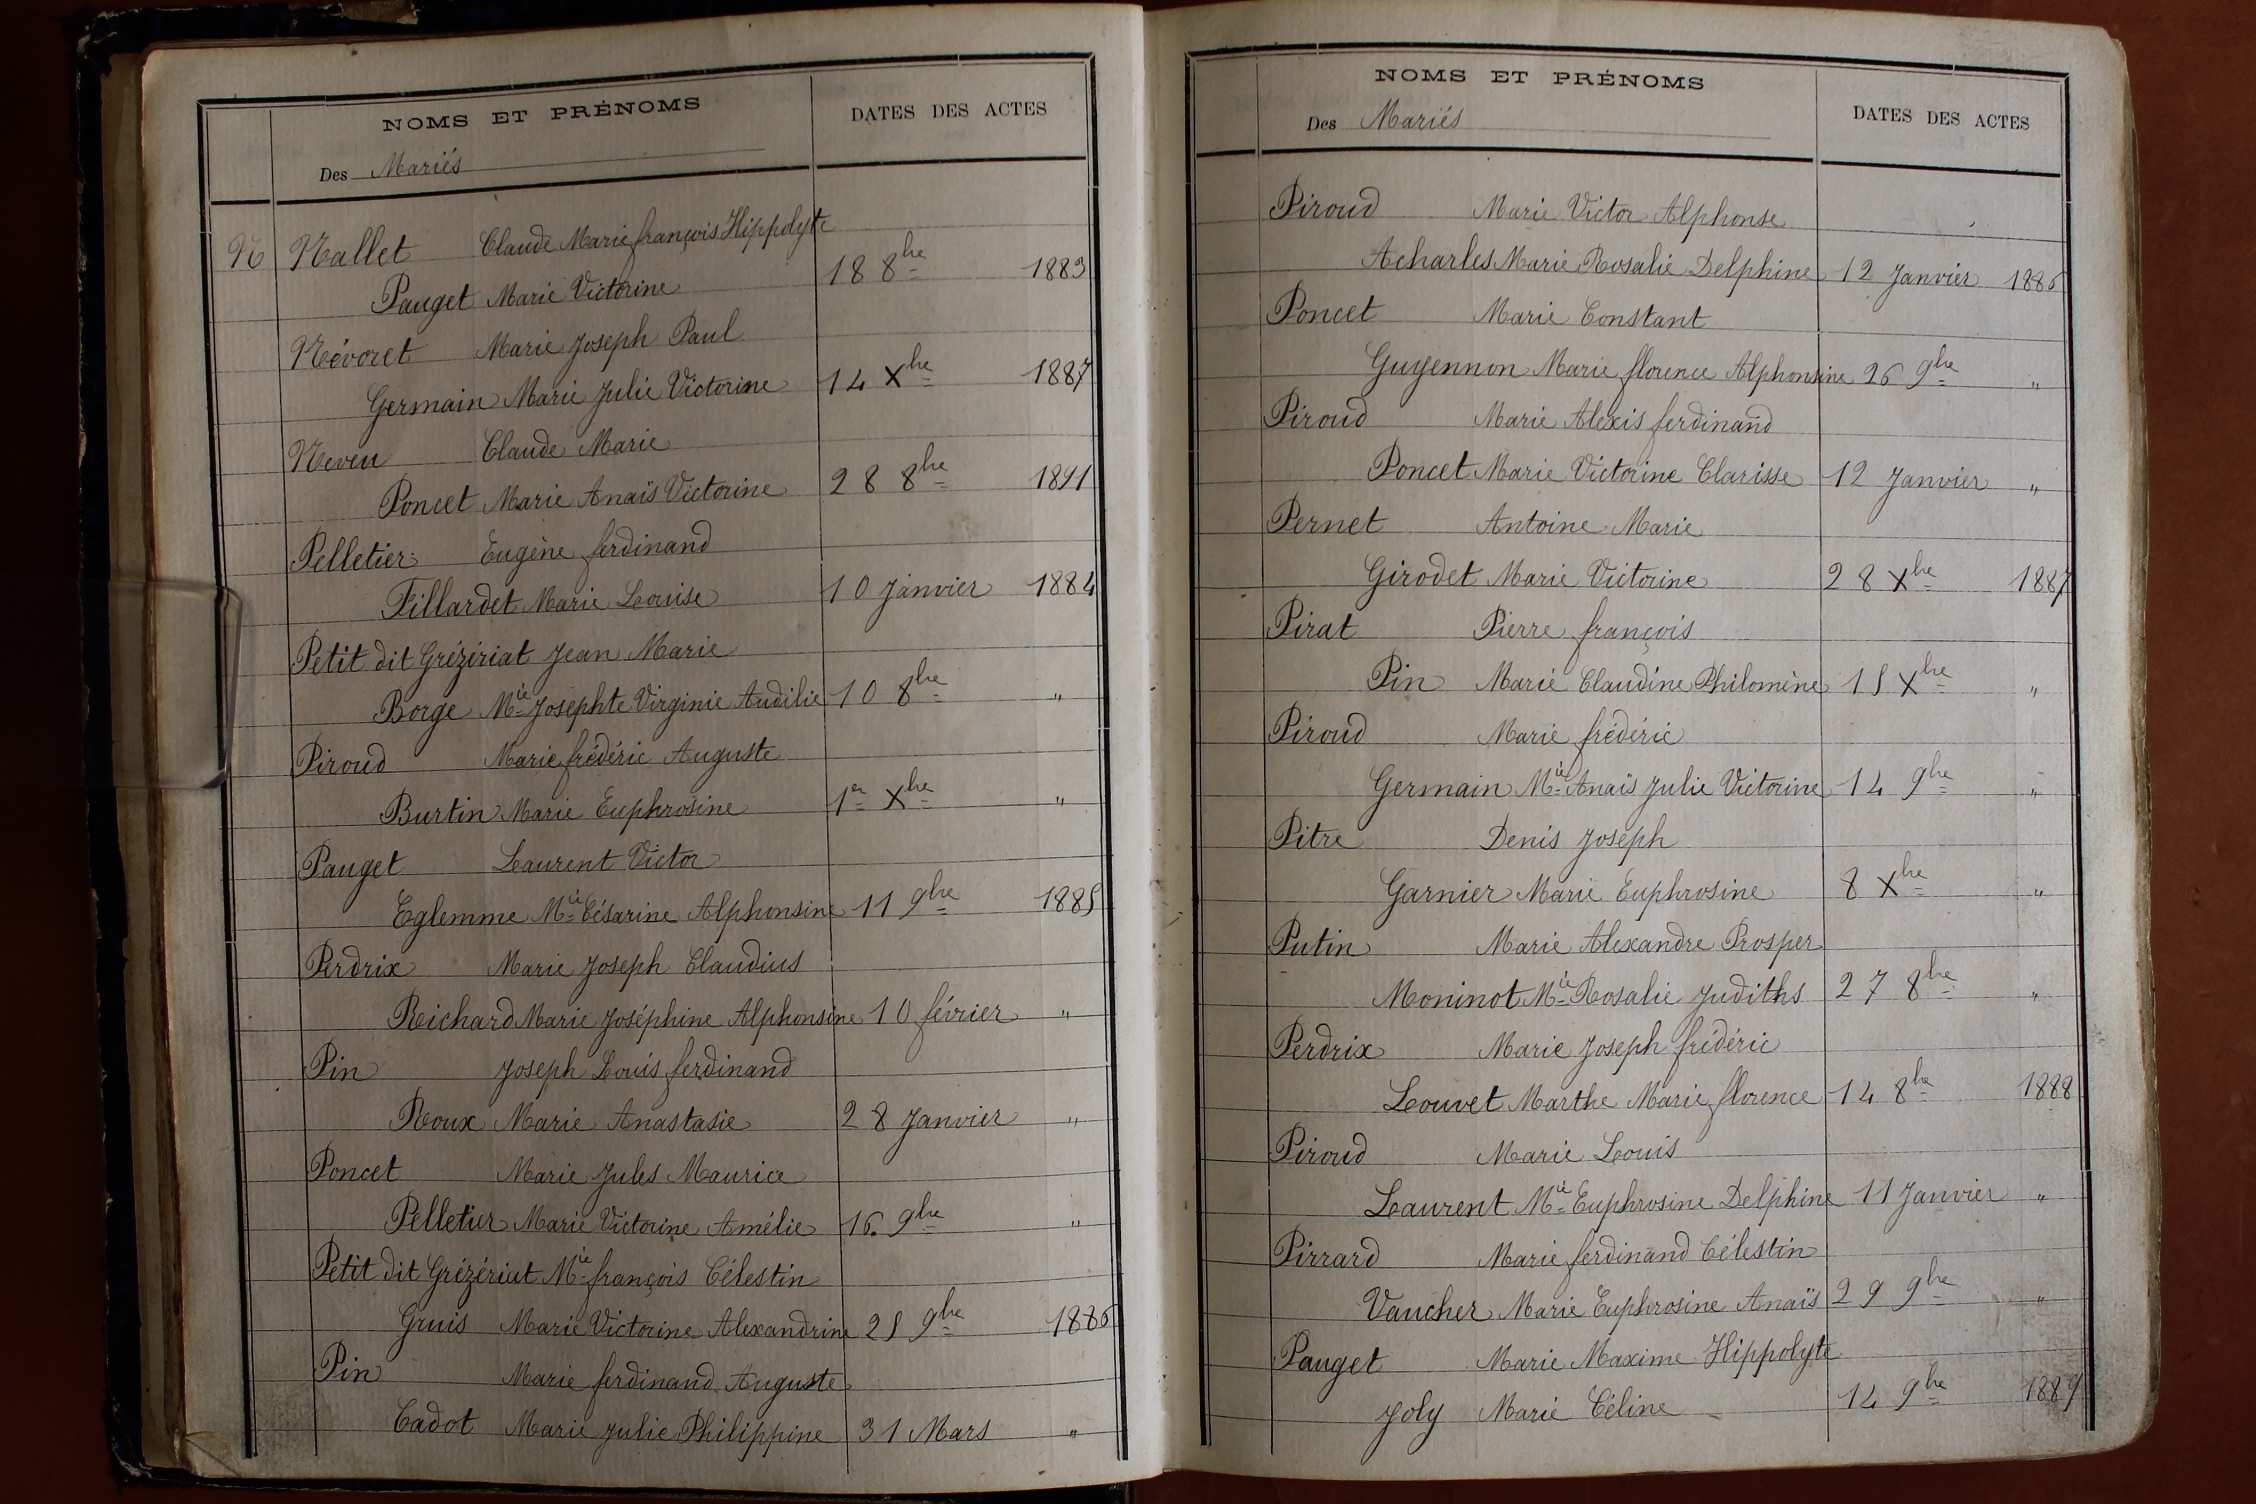 NOMS ET PRÉNOMS
DATES DES ACTES
Des Mariés
N Nallet Claude Marie françois Hippolyte
Pauget Marie Victorine 18 8bre 1883
Névoret Marie Joseph Paul
Germain Marie Julie Victorine 14 Xbre 1887
Neveu Claude Marie
Poncet Marie Anaïs Victorine 28 8bre 1891
Pelletier Eugène ferdinand
Fillardet Marie Louise 10 Janvier 1884
Petit dit Gréziriat Jean Marie
Borge Mie Josephte Virginie Audilie 10 8bre "
Piroud Marie frédéric Auguste
Burtin Marie Euphrosine 1er Xbre "
Pauget Laurent Victor
Eglemme Mie Césarine Alphonsine 11 9bre 1885
Perdrix Marie Joseph Claudius
Reichard Marie Joséphine Alphonsine 10 février "
Pin Joseph Louis ferdinand
Roux Marie Anastasie 28 Janvier "
Poncet Marie Jules Maurice
Pelletier Marie Victorine Amélie 16. 9bre "
Petit dit Grézériat Mie françois Célestin
Gruis Marie Victorine Alexandrine 25 9bre 1886
Pin Marie ferdinand Auguste
Cadot Marie Julie Philippine 31 Mars "
NOMS ET PRÉNOMS
DATES DES ACTES
Des Mariés
Piroud Marie Victor Alphonse
Acharles Marie Rosalie Delphine 12 Janvier 1886
Poncet Marie Constant
Guyennon Marie florence Alphonsine 26 9bre "
Piroud Marie Alexis ferdinand
Poncet Marie Victorine Clarisse 12 Janvier "
Pernet Antoine Marie
Girodet Marie Victorine 28 Xbre 1887
Pirat Pierre françois
Pin Marie Claudine Philomène 15 Xbre "
Piroud Marie frédéric
Germain Mie Anaïs Julie Victorine 14 9bre "
Pitre Denis Joseph
Garnier Marie Euphrosine 8 Xbre "
Putin Marie Alexandre Prosper
Moninot Mie Rosalie Judiths 27 8bre "
Perdrix Marie Joseph frédéric
Louvet Marthe Marie florence 14 8bre 1888
Piroud Marie Louis
Laurent Mie Euphrosine Delphine 11 Janvier "
Pirrard Marie ferdinand Célestin
Vaucher Marie Euphrosine Anaïs 29 9bre "
Pauget Marie Maxime Hippolyte
Joly Marie Céline 14 9bre 1889